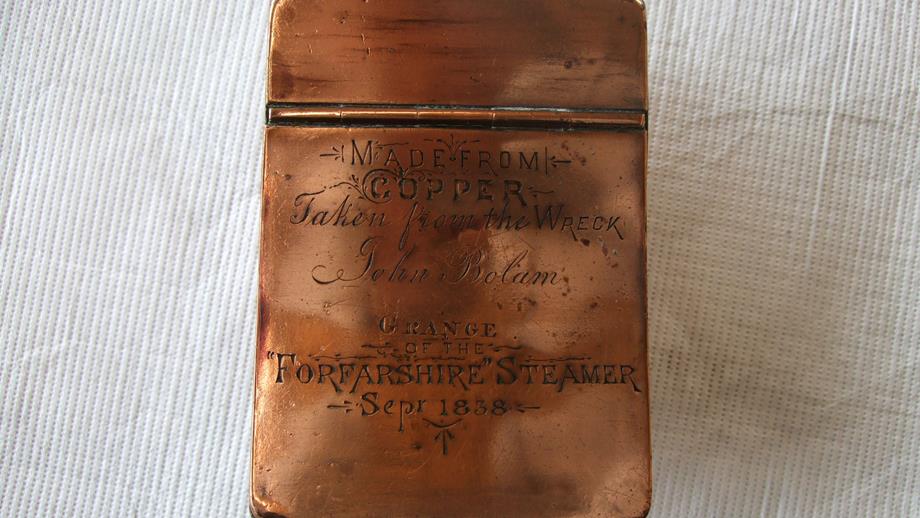 MADE FROM
COPPER
Taken from the WRECK
John Bolam
GRANGE
OF THE
"FORFARSHIRE" STEAMER
Sepr 1838